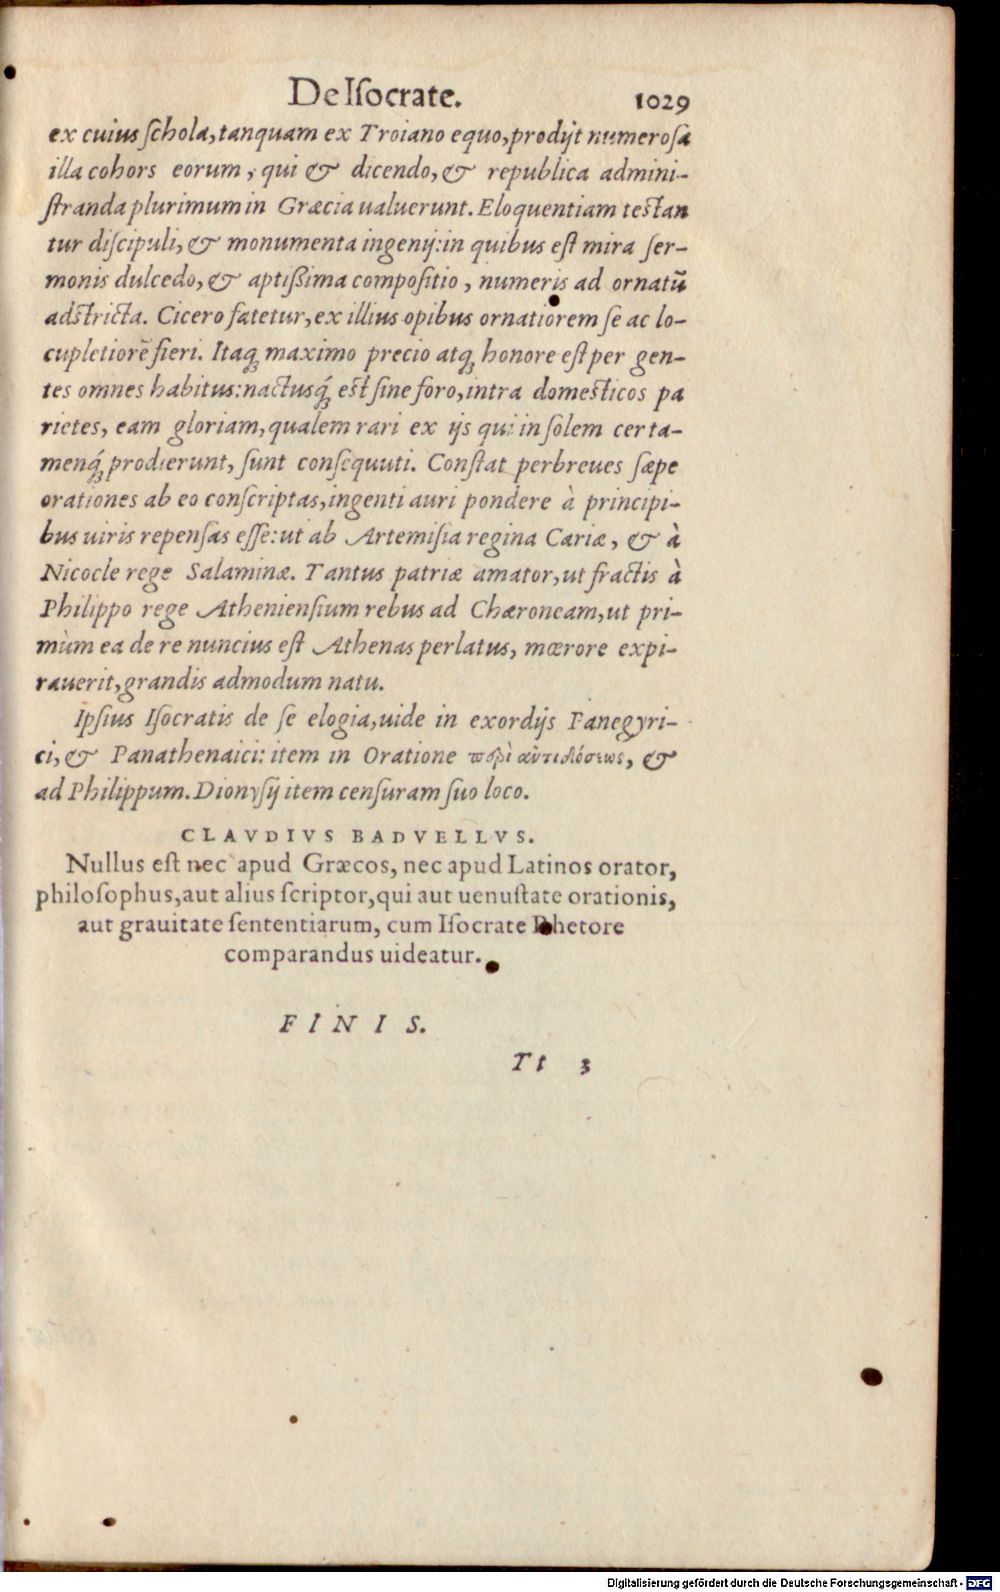 De Iſocrate. 1029
ex cuius ſchola, tanquam ex Troiano equo, prodijt numeroſa
illa cohors eorum, qui & dicendo, & republica admini-
ſtranda plurimum in Græcia ualuerunt. Eloquentiam teſtan
tur diſcipuli, & monumenta ingenij: in quibus eſt mira ſer-
monis dulcedo, & aptiſſima compoſitio, numeris ad ornatū
adſtricta. Cicero fatetur, ex illius opibus ornatiorem ſe ac lo-
cupletiorē fieri. Itaq; maximo precio atq; honore eſt per gen-
tes omnes habitus: nactusq́; eſt ſine foro, intra domeſticos pa
rietes, eam gloriam, qualem rari ex ijs qui in ſolem certa-
menq́; prodierunt, ſunt conſequuti. Conſtat perbreues ſæpe
orationes ab eo conſcriptas, ingenti auri pondere à principi-
bus uiris repenſas eſſe: ut ab Artemiſia regina Cariæ, & à
Nicocle rege Salaminæ. Tantus patriæ amator, ut fractis à
Philippo rege Athenienſium rebus ad Chæroneam, ut pri-
mùm ea de re nuncius eſt Athenas perlatus, mœrore expi-
rauerit, grandis admodum natu.
Ipſius Iſocratis de ſe elogia, uide in exordijs Panegyri-
ci, & Panathenaici: item in Oratione περὶ ἀντιδόσεως, &
ad Philippum. Dionyſij item cenſuram ſuo loco.
CLAVDIVS BADVELLVS.
Nullus eſt nec apud Græcos, nec apud Latinos orator,
philoſophus, aut alius ſcriptor, qui aut uenuſtate orationis,
aut grauitate ſententiarum, cum Iſocrate Rhetore
comparandus uideatur.
FINIS.
Tt 3
Digitalisierung gefördert durch die Deutsche Forschungsgemeinschaft - DFG